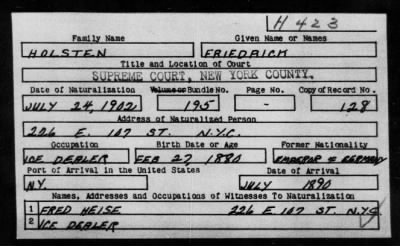 H 423
Family Name Given Name or Names
HOLSTEN FRIEDRICH
Title and Location of Court
SUPREME COURT, NEW YORK COUNTY.
Date of Naturalization Volume or Bundle No. Page No. Copy of Record No.
JULY 24, 1902 195 - 128
Address of Naturalized Person
226 E. 107 ST. N.Y.C.
Occupation Birth Date or Age Former Nationality
ICE DEALER FEB 27 1880 EMPEROR = GERMANY
Port of Arrival in the United States Date of Arrival
N.Y. JULY 1890
Names, Addresses and Occupations of Witnesses To Naturalization
1 FRED HEISE 226 E 107 ST. N.Y.C
2 ICE DEALER